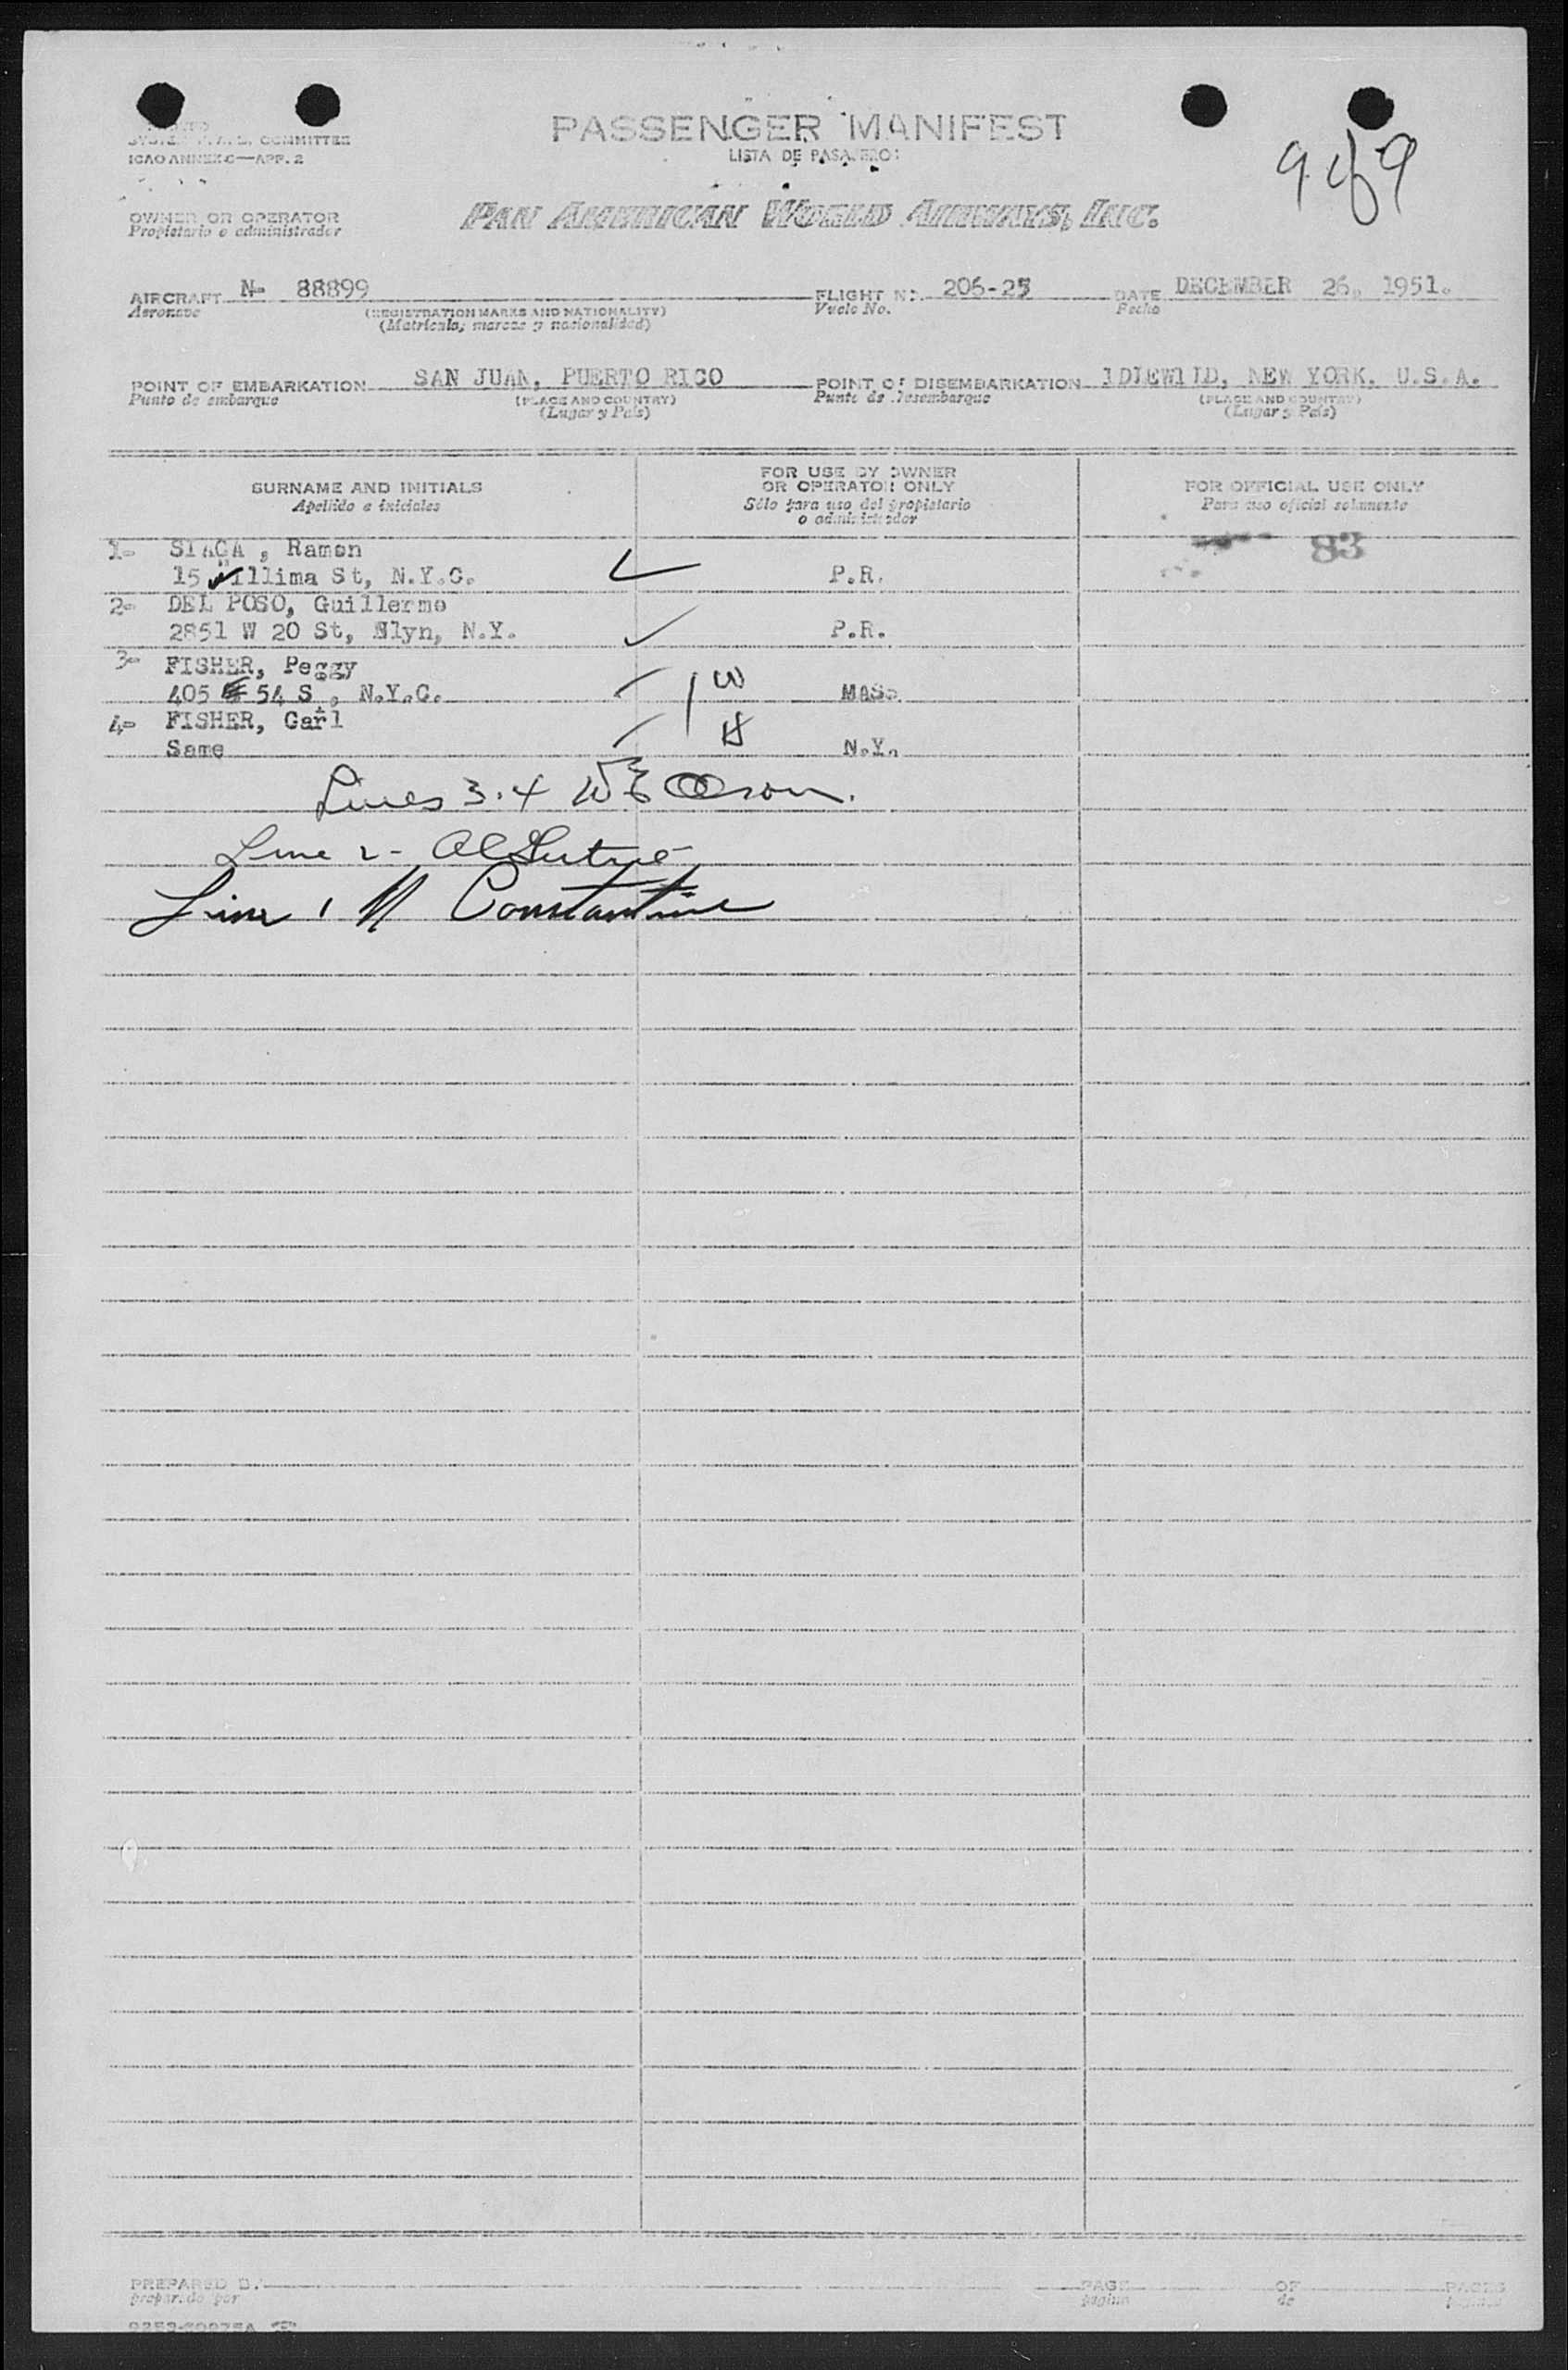 COMMITTEE
ICAO ANNEX 9—APP. 2
PASSENGER MANIFEST
LISTA DE PASAJEROS
9 of 9
OWNER OR OPERATOR
Propietario o administrador
PAN AMERICAN WORLD AIRWAYS, INC.
AIRCRAFT N- 88899 FLIGHT No. 206-25 DATE DECEMBER 26, 1951.
Aeronave (REGISTRATION MARKS AND NATIONALITY) Vuelo No. Fecha
(Matrícula, marcas y nacionalidad)
POINT OF EMBARKATION SAN JUAN, PUERTO RICO POINT OF DISEMBARKATION IDLEWILD, NEW YORK, U.S.A.
Punto de embarque (PLACE AND COUNTRY) Punto de desembarque (PLACE AND COUNTRY)
(Lugar y País) (Lugar y País)
SURNAME AND INITIALS FOR USE BY OWNER OR OPERATOR ONLY FOR OFFICIAL USE ONLY
Apellido e iniciales Sólo para uso del propietario o administrador Para uso oficial solamente
1- SIACA , Ramon 83
15 Willima St, N.Y.C. P.R.
2- DEL POSO, Guillermo
2851 W 20 St, Blyn, N.Y. P.R.
3- FISHER, Peggy W
405 E 54 St, N.Y.C. MASS.
4- FISHER, Carl H
Same N.Y.
Lines 3.4
Line 2-
Line 1 M Constantine
PREPARED BY PAGE OF PAGES
preparado por página de páginas